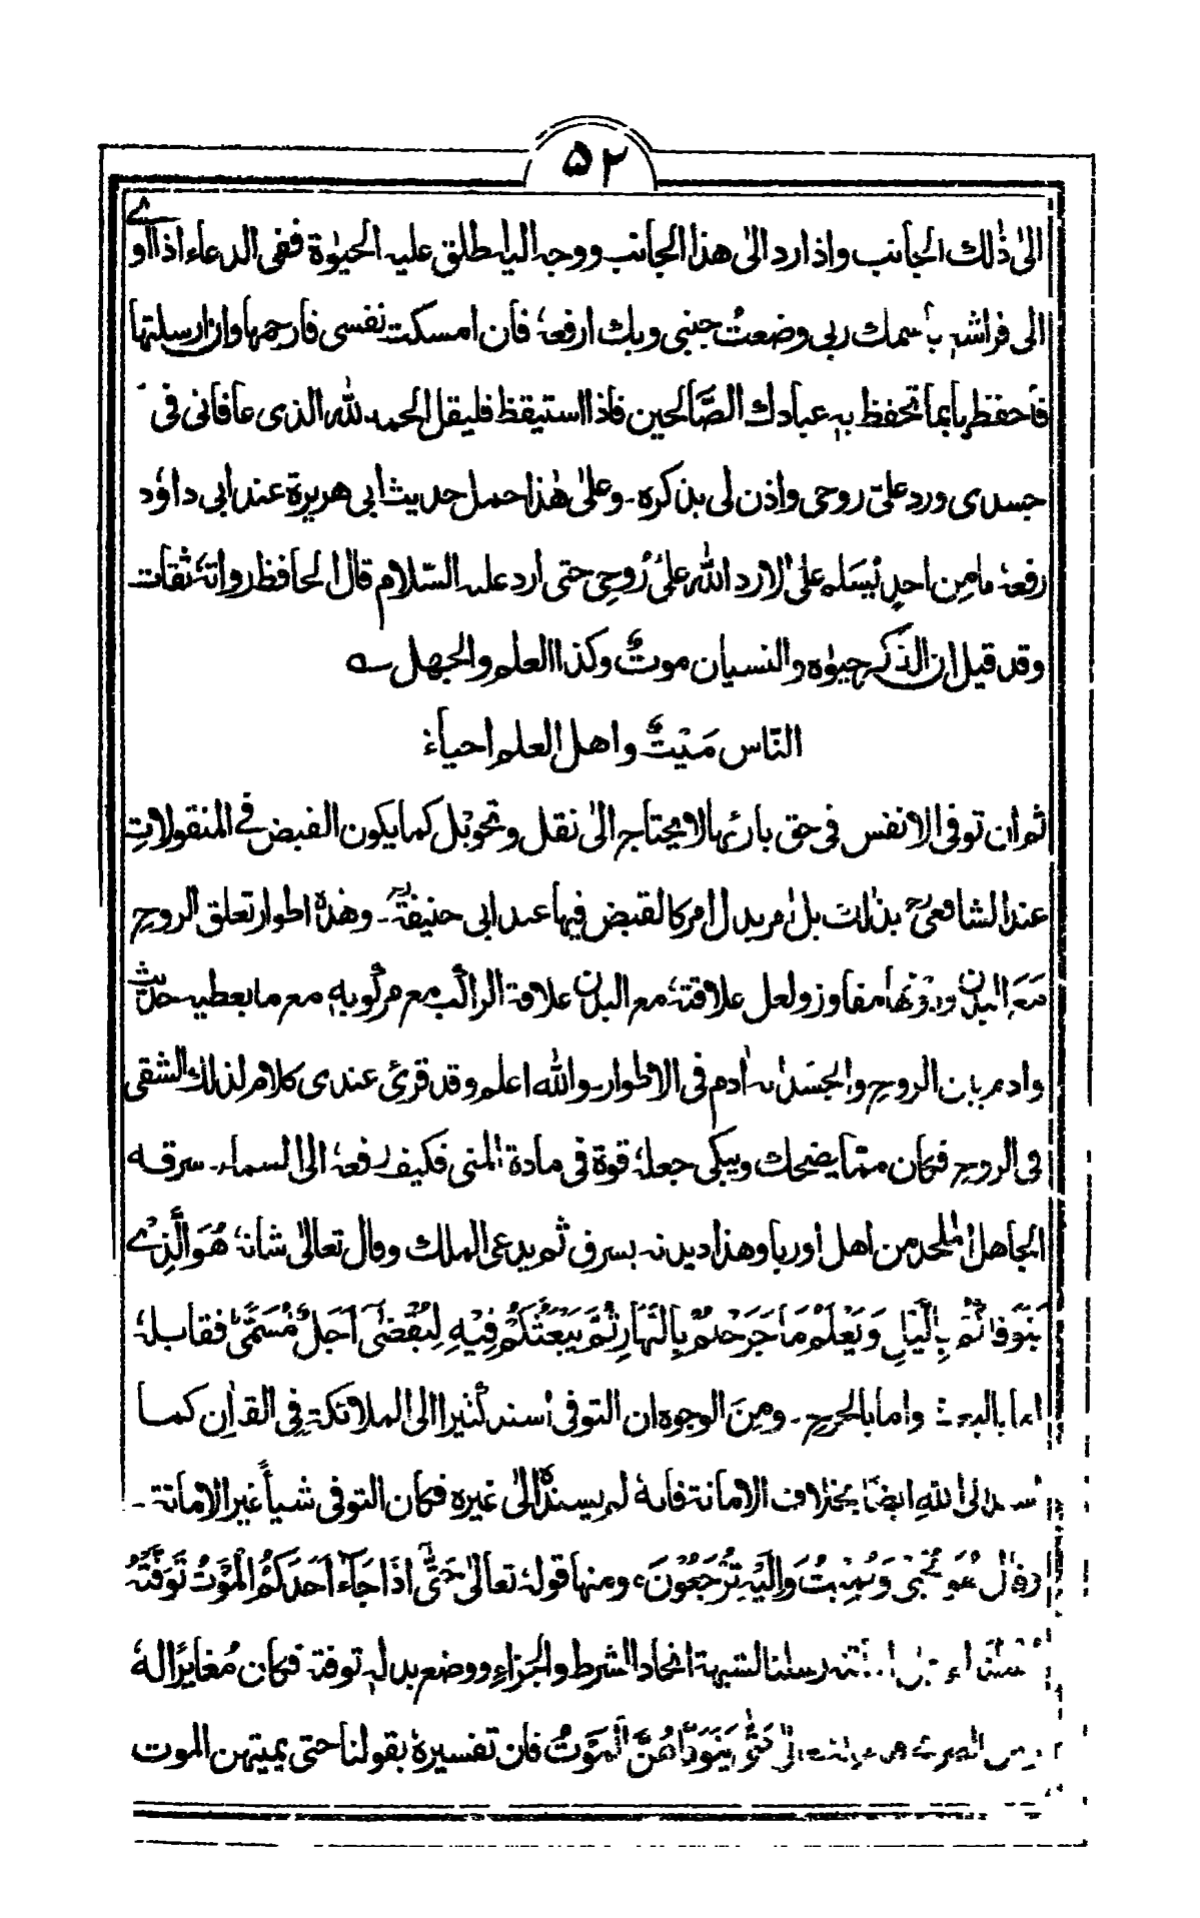 ۵۲
الیٰ ذٰلك الجانب واذا رد الیٰ هذا الجانب ووجه الیا یطلق علیه الحیوٰة ففی الدعاء اذا اوے
الی فراشه بأسمك ربی وضعتُ جنبی وبك ارفعهٗ فأن امسكت نفسی فارحمها وان ارسلتها
فأحفظها بما تحفظ به عبادك الصَّالحین فاذا استیقظ فلیقل الحمد لله الذی عافانی فی
جسدی ورد علیّ روحی واذن لی بذكره ۔ وعلیٰ هٰذا حمل حدیث ابی هریرة عند ابی داؤد
رفعهٗ ما من احدٍ یُسَلم علیٰ الا رد الله علیٰ رُوحی حتی ارد علیه السّلام قال الحافظ رواتهٗ ثقات
وقد قیل ان الذكر حیوٰه والنسیان موتٌ وكذا العلم والجهل ؎
النّاس مَیْتٌ واهل العلم احیاءٗ
ثم ان توفی الانفس فی حق بارئها لا یحتاج الیٰ نقل وتحویل كما یكون القبض فے المنقولاتِ
عند الشافعیؒ بذٰلت بل امر بدل امر كالقبض فیها عند ابی حنیفةؒ ۔ وهٰذهٖ اطوار تعلق الروح
مَعَ البدن وبدونها مفاوز ولعل علاقتهٗ مع البدن علاقة الراكب مع مركوبه مع ما یعطیه حدیث
وادم بان الروح والجسد ادم فی الاطوار ۔ والله اعلم وقد قرئ عندی كلام لذٰلك الشقی
فی الروح فكان ممّا یضحك ویبكی جعلهٗ قوة فی مادة المنی فكیف رفعهٗ الی السماء ۔ سرقه
الجاهل الملحد من اهل اوربا وهذا دیدنه یسرق ثم یدعی الملك وقال تعالیٰ شانهٗ هُوَ الَّذِیْ
یَتَوَفّٰىكُمْ بِالَّیْلِ وَیَعْلَمُ مَا جَرَحْتُمْ بِالنَّهَارِ ثُمَّ یَبْعَثُكُمْ فِیْهِ لِیُقْضٰٓی اَجَلٌ مُّسَمًّی فقابلهٗ
اما بالبعث واما بالجرح ۔ ومِنَ الوجوه ان التوفی اسند كثیرا الی الملائكة فِی القراٰن كمـا
الی اللهِ ایضًا بخلاف الامانة فانهٗ لم یسندهُ الیٰ غیره فكان التوفی شیأً غیر الامانة ۔
هُوَ یُحْیٖ وَیُمِیْتُ وَاِلَیْهِ تُرْجَعُوْنَ ، ومنها قولهٗ تعالیٰ حَتّٰٓی اِذَا جَآءَ اَحَدَكُمُ الْمَوْتُ تَوَفَّتْهُ
رُسُلُنَا رسلنا لشبهة اتحاد الشرط والجزاء ووضع بدله توفة فكان مُغایرًا لهٗ
حَتّٰی یَتَوَفّٰهُنَّ الْمَوْتُ فان تفسیرهٗ بقولنا حتی یمیتهن الموت